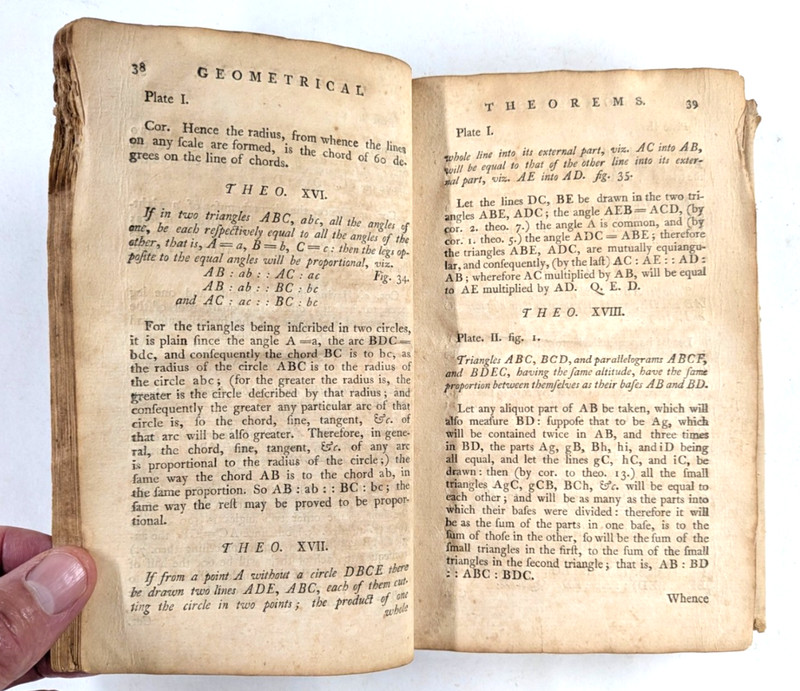 38 GEOMETRICAL
Plate I.
Cor. Hence the radius, from whence the lines
on any ſcale are formed, is the chord of 60 de-
grees on the line of chords.
THEO. XVI.
If in two triangles ABC, abc, all the angles of
one, be each reſpectively equal to all the angles of the
other, that is, A=a, B=b, C=c: then the legs op-
poſite to the equal angles will be proportional, viz.
AB : ab : : AC : ac Fig. 34.
AB : ab : : BC : bc
and AC : ac : : BC : bc
For the triangles being inſcribed in two circles,
it is plain ſince the angle A =a, the arc BDC=
bdc, and conſequently the chord BC is to bc, as
the radius of the circle ABC is to the radius of
the circle abc; (for the greater the radius is, the
greater is the circle deſcribed by that radius; and
conſequently the greater any particular arc of that
circle is, ſo the chord, ſine, tangent, &c. of
that arc will be alſo greater. Therefore, in gene-
ral, the chord, ſine, tangent, &c. of any arc
is proportional to the radius of the circle;) the
ſame way the chord AB is to the chord ab, in
the ſame proportion. So AB : ab : : BC : bc; the
ſame way the reſt may be proved to be propor-
tional.
THEO. XVII.
If from a point A without a circle DBCE there
be drawn two lines ADE, ABC, each of them cut-
ting the circle in two points; the product of one
whole
THEOREMS. 39
Plate I.
whole line into its external part, viz. AC into AB,
will be equal to that of the other line into its exter-
nal part, viz. AE into AD. fig. 35.
Let the lines DC, BE be drawn in the two tri-
angles ABE, ADC; the angle AEB=ACD, (by
cor. 2. theo. 7.) the angle A is common, and (by
cor. 1. theo. 5.) the angle ADC = ABE; therefore
the triangles ABE, ADC, are mutually equiangu-
lar, and conſequently, (by the laſt) AC : AE : : AD :
AB; wherefore AC multiplied by AB, will be equal
to AE multiplied by AD. Q. E. D.
THEO. XVIII.
Plate. II. fig. 1.
Triangles ABC, BCD, and parallelograms ABCF,
and BDEC, having the ſame altitude, have the ſame
proportion between themſelves as their baſes AB and BD.
Let any aliquot part of AB be taken, which will
alſo meaſure BD: ſuppoſe that to be Ag, which
will be contained twice in AB, and three times
in BD, the parts Ag, gB, Bh, hi, and iD being
all equal, and let the lines gC, hC, and iC, be
drawn: then (by cor. to theo. 13.) all the ſmall
triangles AgC, gCB, BCh, &c. will be equal to
each other; and will be as many as the parts into
which their baſes were divided: therefore it will
be as the ſum of the parts in one baſe, is to the
ſum of thoſe in the other, ſo will be the ſum of the
ſmall triangles in the firſt, to the ſum of the ſmall
triangles in the ſecond triangle; that is, AB : BD
: : ABC : BDC.
Whence